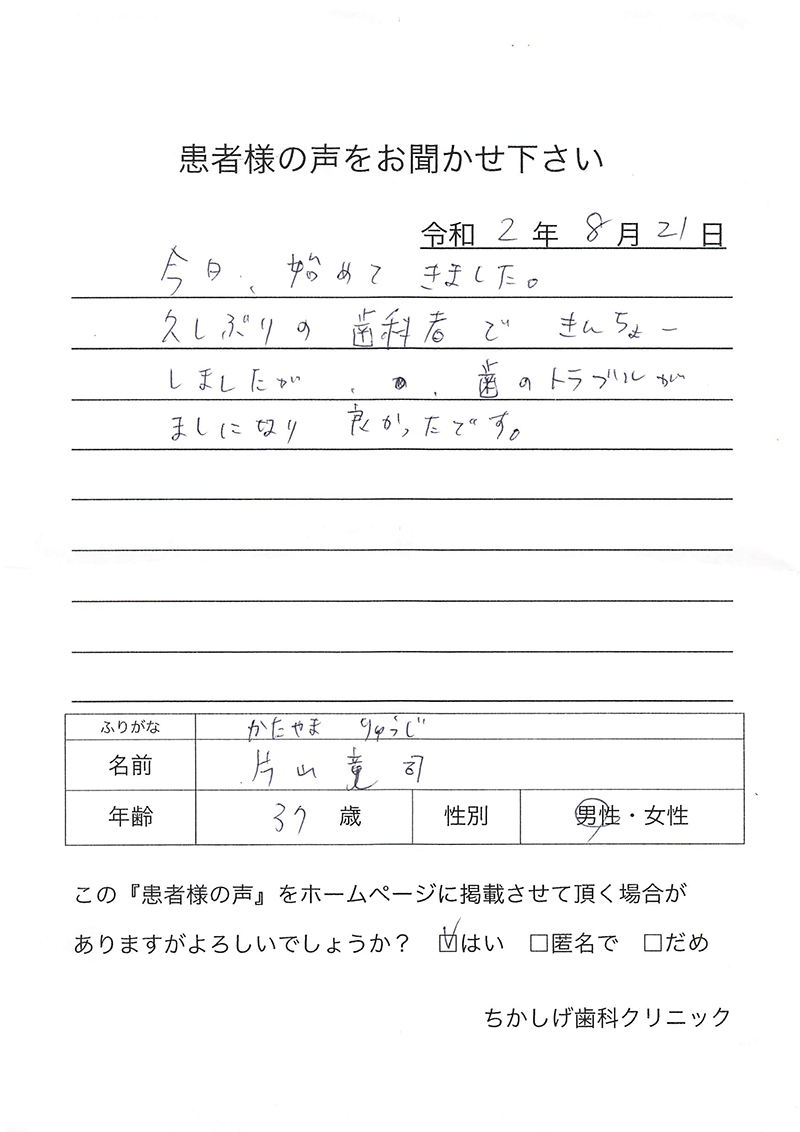 患者様の声をお聞かせ下さい
令和 2 年 8 月 21 日
今日、始めて きました。
久しぶりの 歯科者で きんちょー
しましたが、、歯のトラブルが
ましになり 良かったです。
ふりがな かたやま りゅうじ
名前 片山 竜司
年齢 37 歳 性別 男性・女性
この『患者様の声』をホームページに掲載させて頂く場合が
ありますがよろしいでしょうか？ ☑はい □匿名で □だめ
ちかしげ歯科クリニック